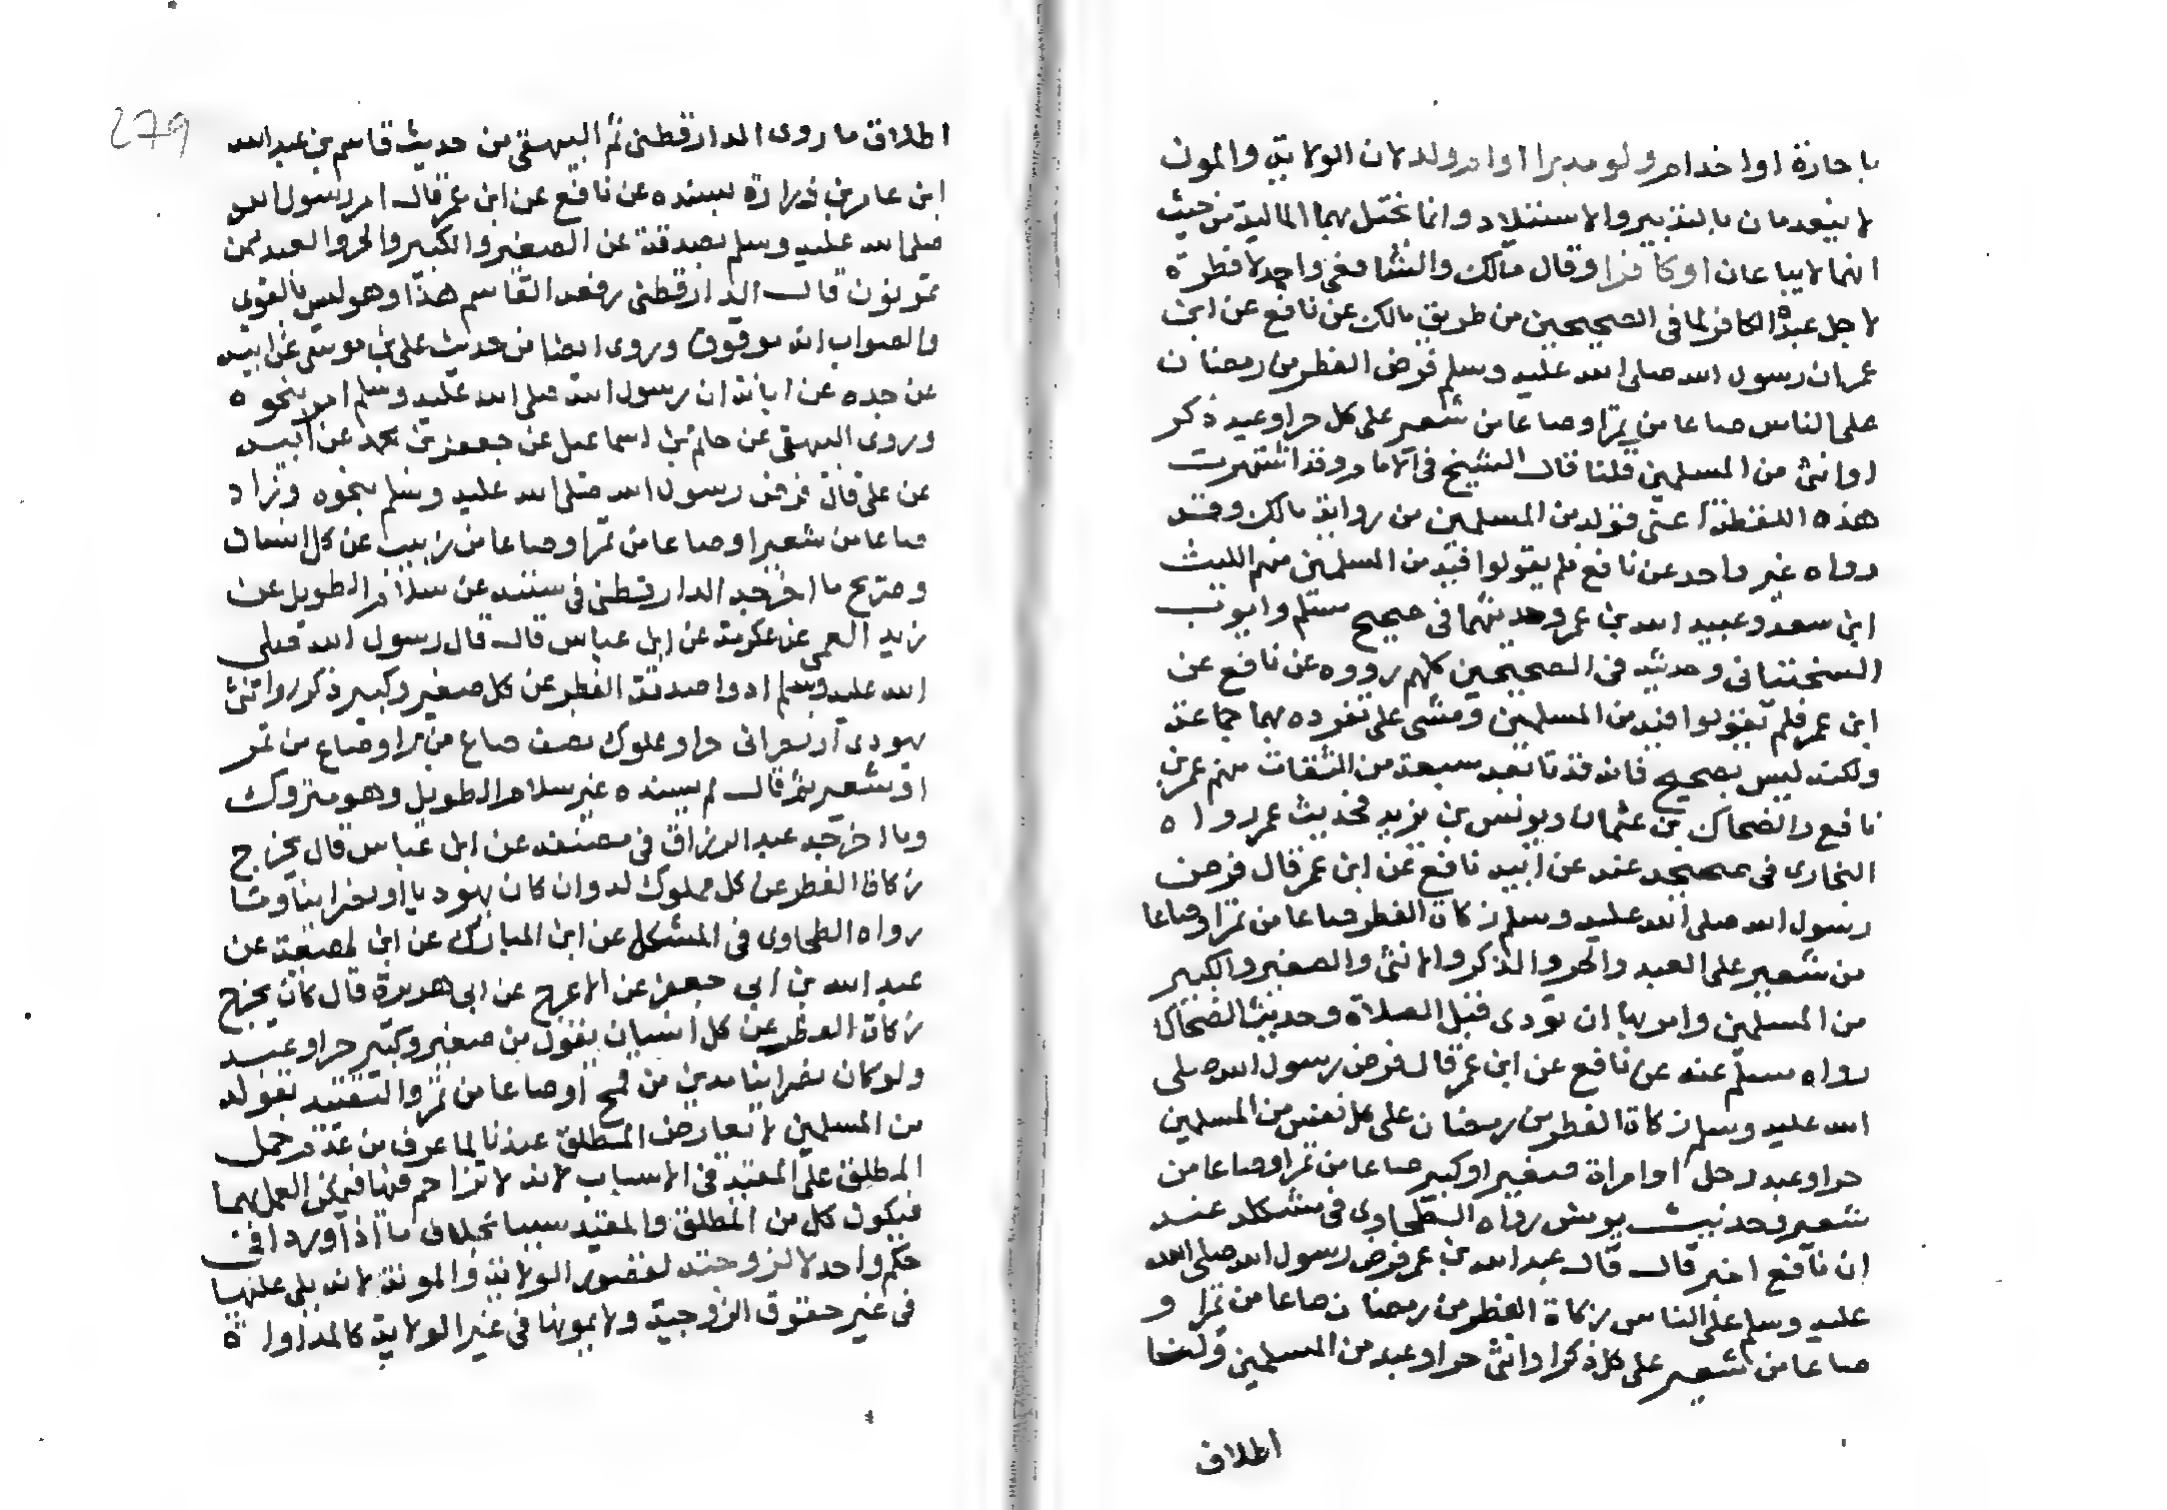 باجارة او اخدام ولو مدبرا او ام ولد لان الولاية والمون
لا ينعدمان بالتدبير والاستيلاد وانما تختل بهما المالية من حيث
انهما لا يباعان او كافرا وقال مالك والشافعي واحمد لا فطرة
لاجل عبده الكافر لما في الصحيحين من طريق مالك عن نافع عن ابن
عمر ان رسول الله صلى الله عليه وسلم فرض الفطر من رمضان
على الناس صاعا من تمر او صاعا من شعير على كل حر او عبد ذكر
او انثى من المسلمين قلنا قال الشيخ في الامام وقد اشتهرت
هذه اللفظة اعنى قوله من المسلمين من رواية مالك وقد
رواه غير واحد عن نافع فلم يقولوا فيه من المسلمين منهم الليث
ابن سعد وعبيد الله بن عمر وحديثهما في صحيح مسلم وايوب
السختياني وحديثه في الصحيحين كلهم رووه عن نافع عن
ابن عمر فلم يقولوا فيه من المسلمين ومشى على تفرده بها جماعة
ولكنه ليس بصحيح فانه قد تابعه سبعة من الثقات منهم عمر بن
نافع والضحاك بن عثمان ويونس بن يزيد فحديث عمر رواه
البخارى في صحيحه عنه عن ابيه نافع عن ابن عمر قال فرض
رسول الله صلى الله عليه وسلم زكاة الفطر صاعا من تمر او صاعا
من شعير على العبد والحر والذكر والانثى والصغير والكبير
من المسلمين وامر بها ان تؤدى قبل الصلاة وحديث الضحاك
رواه مسلم عنه عن نافع عن ابن عمر قال فرض رسول الله صلى
الله عليه وسلم زكاة الفطر من رمضان على كل نفس من المسلمين
حر او عبد رجل او امراة صغير او كبير صاعا من تمر او صاعا من
شعير وحديث يونس رواه الطحاوى في مشكله عنه
ان نافع اخبر قال قال عبد الله بن عمر فرض رسول الله صلى الله
عليه وسلم على الناس زكاة الفطر من رمضان صاعا من تمر او
صاعا من شعير على كل ذكر او انثى حر او عبد من المسلمين ولنا
اطلاق
279
اطلاق ما روى الدارقطنى ثم البيهقي من حديث قاسم بن عبد الله
ابن عامر بن زرارة بسنده عن نافع عن ابن عمر قال امر رسول الله
صلى الله عليه وسلم بصدقة عن الصغير والكبير والحر والعبد ممن
تمونون قال الدارقطنى رفعه القاسم هذا وهو ليس بالقوى
والصواب انه موقوف وروى ايضا من حديث على بن موسى عن ابيه
عن جده عن ابائه ان رسول الله صلى الله عليه وسلم امر بنحوه
وروى البيهقي عن حاتم بن اسماعيل عن جعفر بن محمد عن ابيه
عن على قال فرض رسول الله صلى الله عليه وسلم بنحوه وزاد
صاعا من شعير او صاعا من تمر او صاعا من زبيب عن كل انسان
وصريح ما اخرجه الدارقطنى في سننه عن سلام الطويل عن
زيد العمى عن عكرمة عن ابن عباس قال قال رسول الله صلى
الله عليه وسلم ادوا صدقة الفطر عن كل صغير وكبير ذكر او انثى
يهودى او نصرانى حر او مملوك نصف صاع من بر او صاع من تمر
او شعير ثم قال لم يسنده غير سلام الطويل وهو متروك
وما اخرجه عبد الرزاق في مصنفه عن ابن عباس قال يخرج
زكاة الفطر عن كل مملوك له وان كان يهوديا او نصرانيا وما
رواه الطحاوى في المشكل عن ابن المبارك عن ابن لهيعة عن
عبد الله بن ابي جعفر عن الاعرج عن ابى هريرة قال كان يخرج
زكاة الفطر عن كل انسان يعول من صغير وكبير حر او عبد
ولو كان نصرانيا مدين من قمح او صاعا من تمر والتقييد بقوله
من المسلمين لا يعارض المطلق عندنا لما عرف من عدم حمل
المطلق على المقيد في الاسباب لانه لا تزاحم فيها فيمكن العمل بهما
فيكون كل من المطلق والمقيد سببا بخلاف ما اذا وردا في
حكم واحد لا لزوجته لقصور الولاية والمونة لانه لا يلى عليها
في غير حقوق الزوجية ولا يمونها في غير الولاية كالمداواة